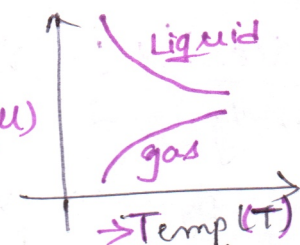 Liquid
u)
gas
→Temp(T)